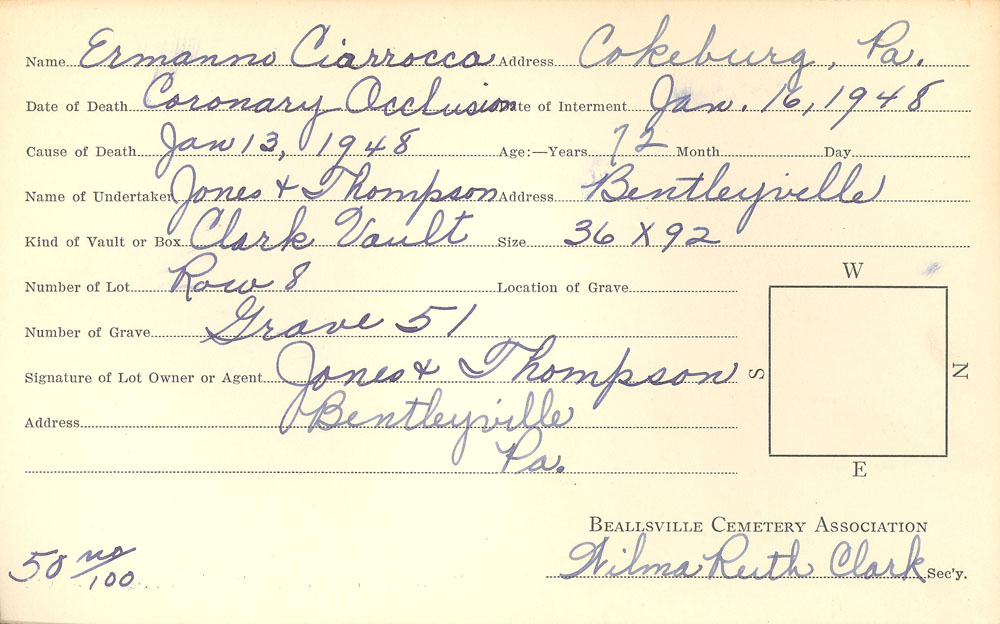 Name Ermanno Ciarrocca Address Cokeburg, Pa.
Date of Death Coronary Occlusion Date of Interment Jan. 16, 1948
Cause of Death Jan 13, 1948 Age:—Years 72 Month Day
Name of Undertaker Jones & Thompson Address Bentleyville
Kind of Vault or Box Clark Vault Size 36 X 92
Number of Lot Row 8 Location of Grave
Number of Grave Grave 51
Signature of Lot Owner or Agent Jones & Thompson
Address Bentleyville
Pa.
W
S N
E
BEALLSVILLE CEMETERY ASSOCIATION
Wilma Ruth Clark Sec'y.
50 no/100